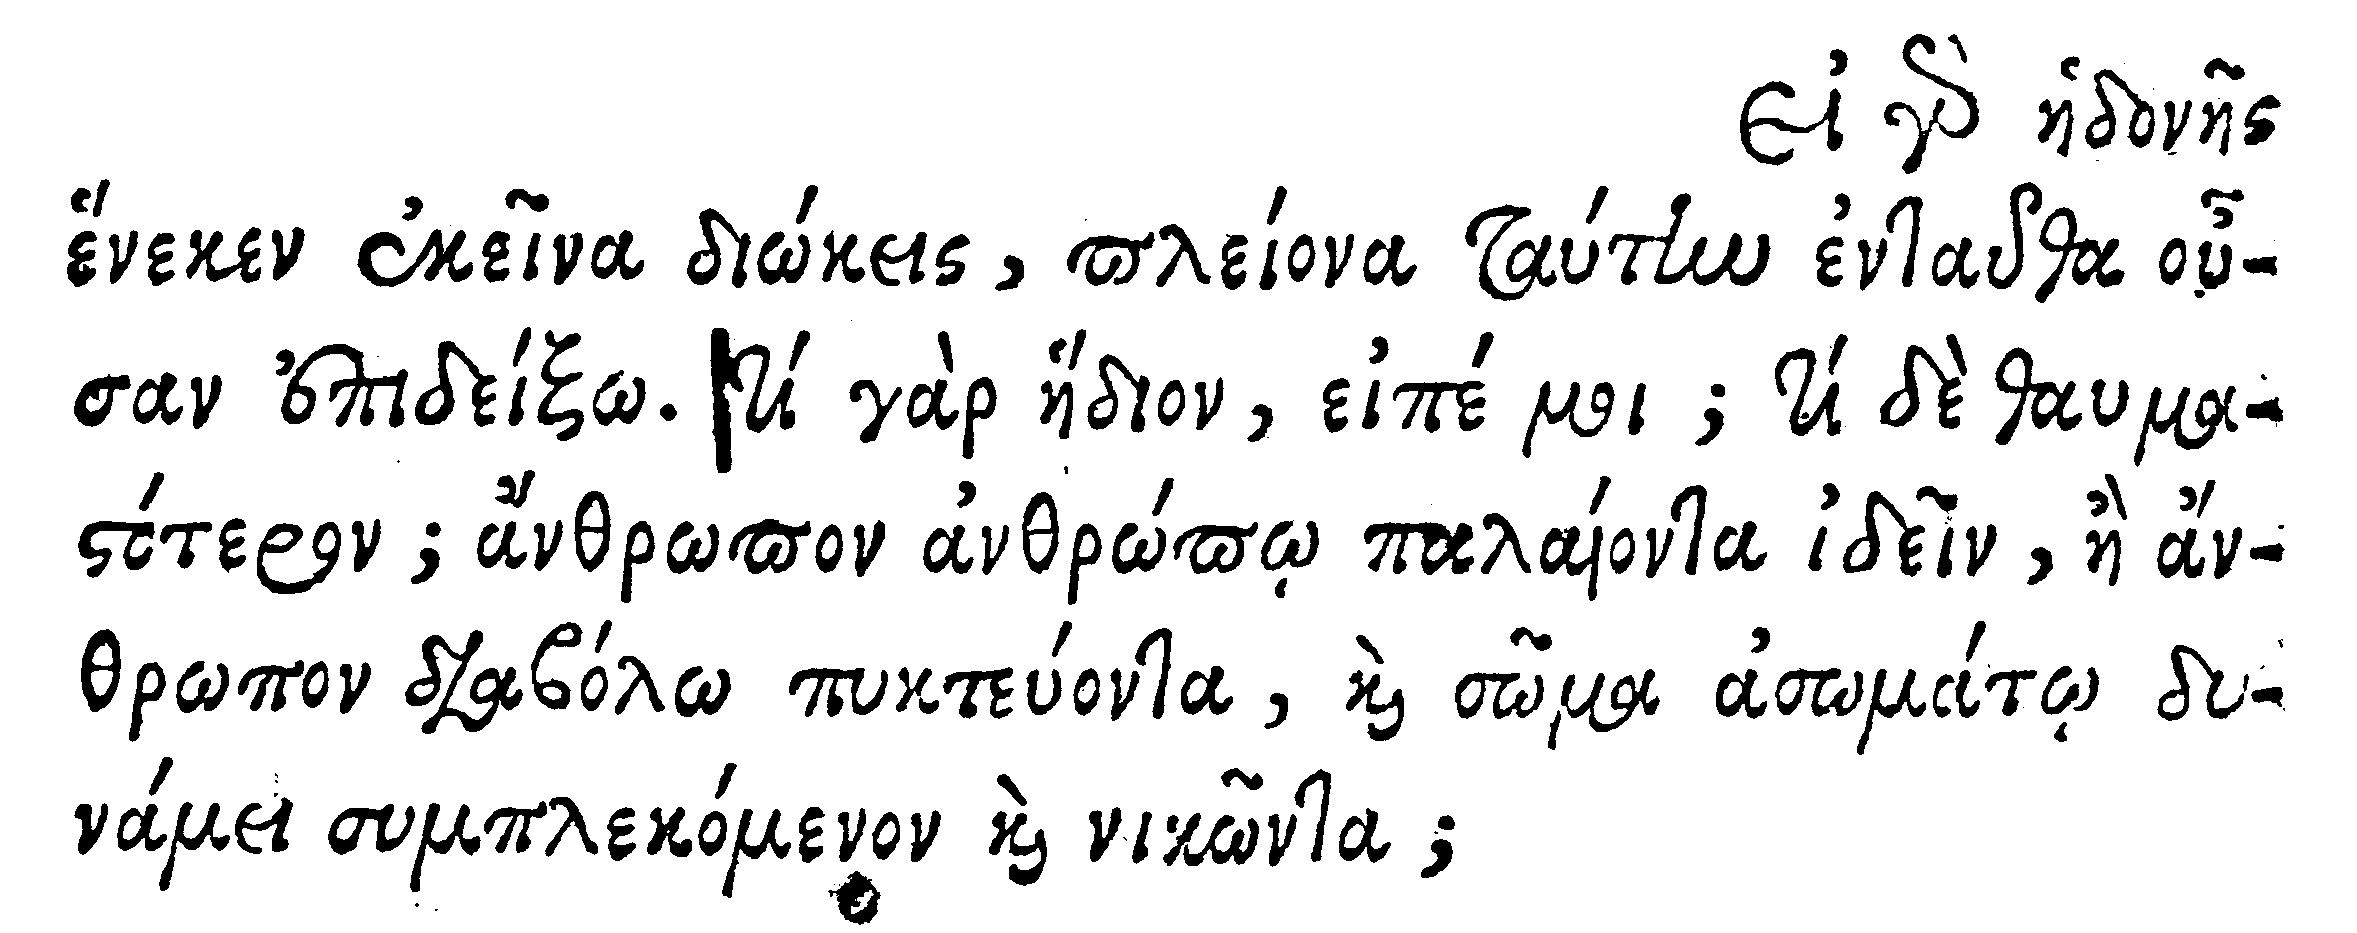 Εἰ γὰρ ἡδονῆς
ἕνεκεν ἐκεῖνα διώκεις, πλείονα ταύτην ἐνταῦθα οὖ-
σαν ἐπιδείξω. Τί γὰρ ἥδιον, εἰπέ μοι; τί δὲ θαυμα-
στότερον; ἄνθρωπον ἀνθρώπῳ παλαίοντα ἰδεῖν, ἢ ἄν-
θρωπον διαβόλω πυκτεύοντα, καὶ σῶμα ἀσωμάτῳ δυ-
νάμει συμπλεκόμενον καὶ νικῶντα;